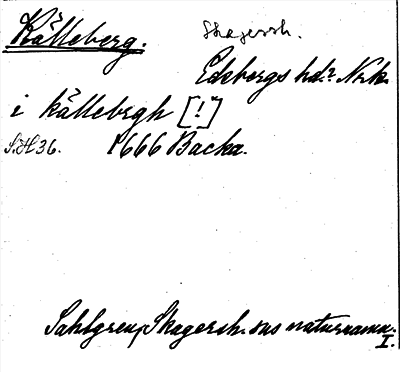 Källeberg. Skagersh.
Edsbergs hd. Nrk.
i källebrgh [!]
S.H 36. 1666 Backa.
Sahlgren, Skagersh. sns naturnamn.
I.